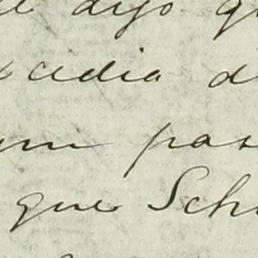 dijo q
cedia d
um pas
que Sch